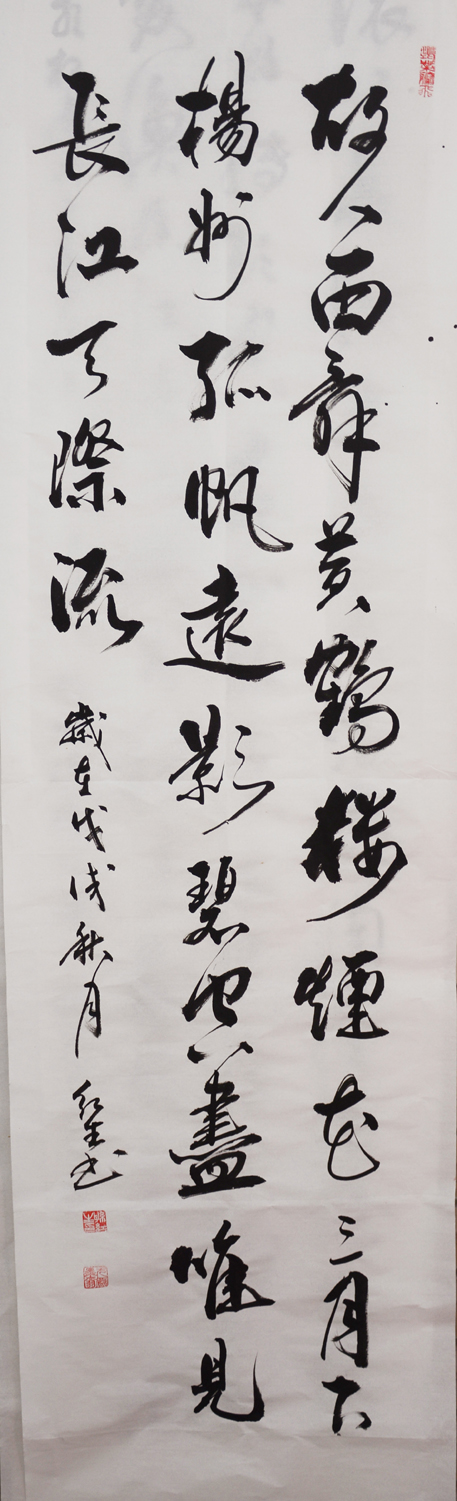 故人西辞黄鶴楼煙花三月下
楊州孤帆遠影碧空盡唯見
長江天際流
歲在戊戌秋月 书